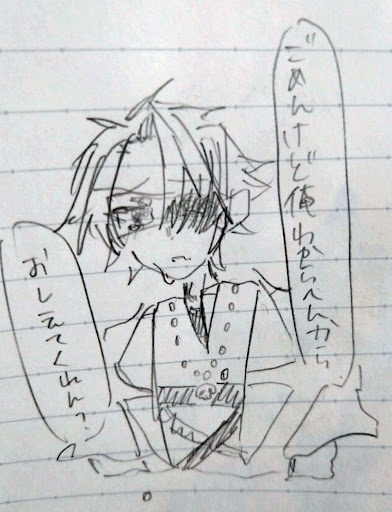 ごめんけど俺わからへんから
おしえてくれん?